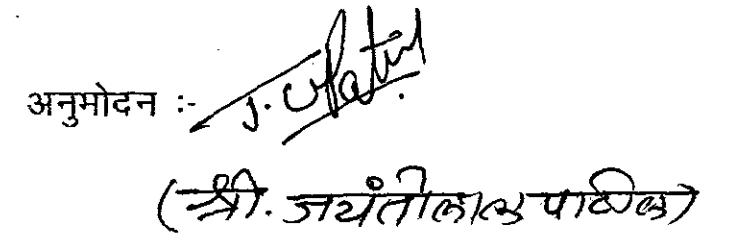 अनुमोदन :- J. U. Patil
(श्री. जयंतीलाल पाटील)